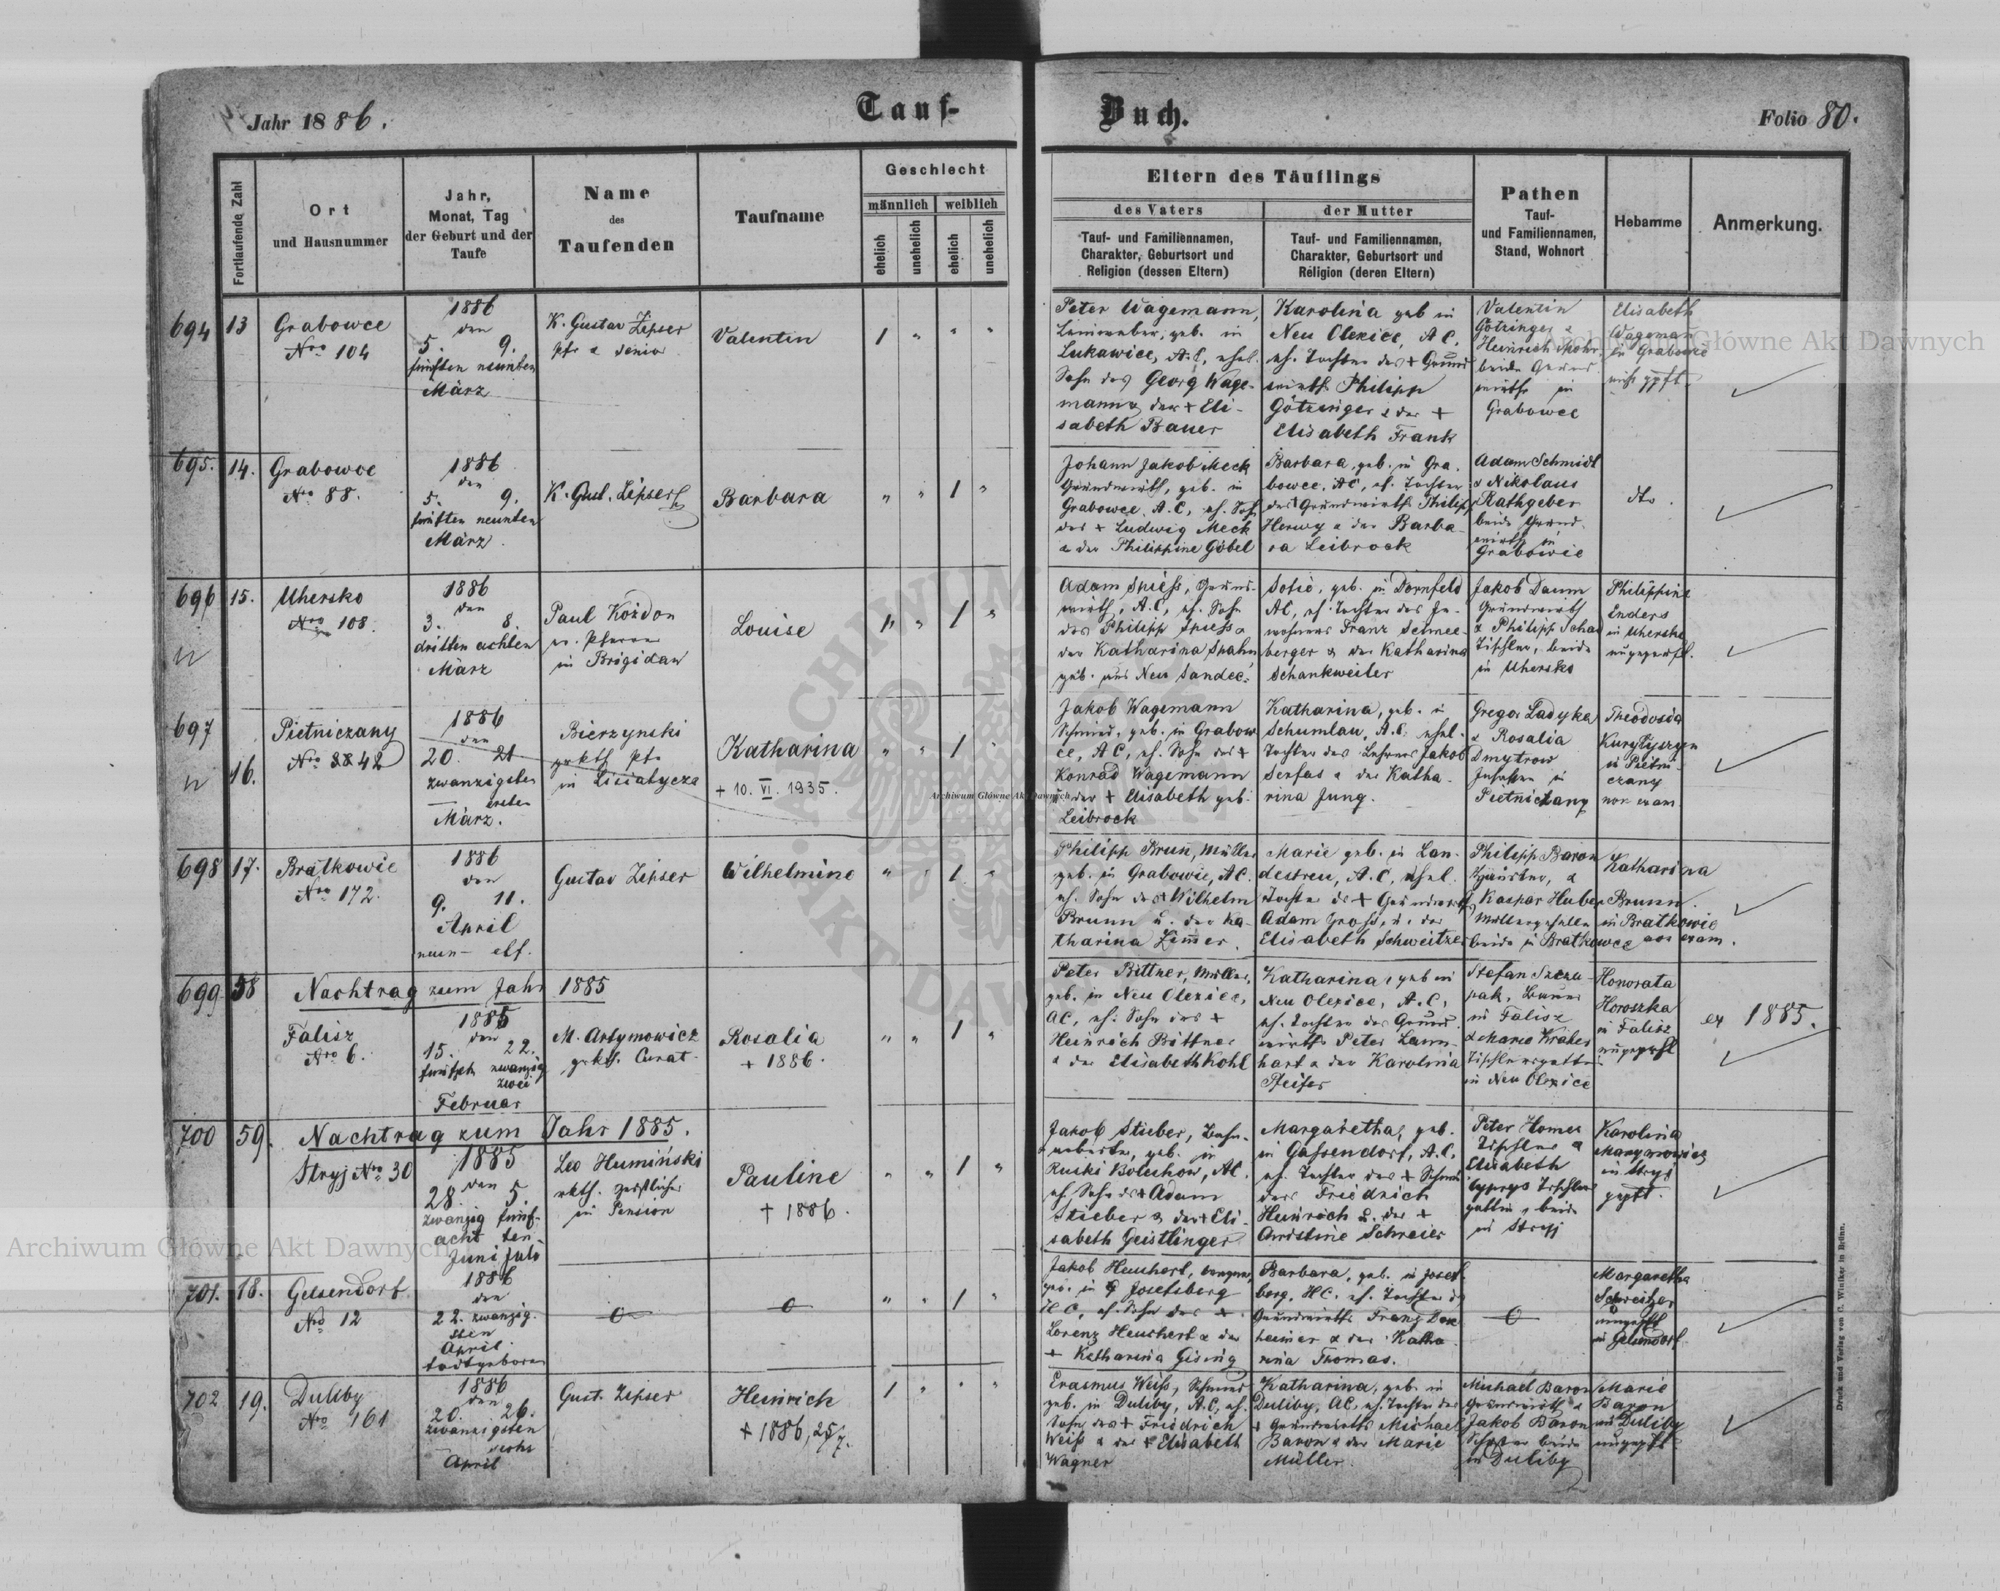 Jahr 1886.
Tauf-
Buch.
Folio 80.
Fortlaufende Zahl
Ort
und Hausnummer
Jahr,
Monat, Tag
der Geburt und der
Taufe
Name
des
Taufenden
Taufname
Geschlecht
männlich
weiblich
ehelich
unehelich
ehelich
unehelich
Eltern des Täuflings
des Vaters
Tauf- und Familiennamen,
Charakter, Geburtsort und
Religion (dessen Eltern)
der Mutter
Tauf- und Familiennamen,
Charakter, Geburtsort und
Religion (deren Eltern)
Pathen
Tauf-
und Familiennamen,
Stand, Wohnort
Hebamme
Anmerkung.
694
13
Grabowce
Nro 104
1886
den
5. 9.
fünften neunten
März
K. Gustav Zipser
Pfr & Senior
Valentin
1 " " "
Peter Wagemann,
Leinweber, geb. in
Lukawice, A.C, ehel.
Sohn des Georg Wage-
mann & der + Eli-
sabeth Bauer
Karolina geb in
Neu Olexice, A.C,
eh. Tochter des + Grund
wirths Philipp
Götzinger & der +
Elisabeth Frank
Valentin
Götzinger &
Heinrich Mohr,
beide Grund
wirthe in
Grabowce
Elisabeth
Wageman
in Grabowce
nicht gpft.
695.
14.
Grabowce
Nro 88.
1886
den
5. 9.
fünften neunten
März.
K. Gust. Zipser
Barbara
" " 1 "
Johann Jakob Meck
Grundwirth, geb. in
Grabowce, A.C, eh. Sohn
des + Ludwig Meck
& der Philippine Göbel
Barbara, geb. in Gra-
bowce, AC, eh. Tochter
des Grundwirths Philipp
Herwy & der Barba-
ra Leibrock
Adam Schmidt
& Nikolaus
Rathgeber
beide Grund-
wirthe in
Grabowce
dto.
696
15.
Uhersko
Nro 108.
1886
den
3. 8.
dritten achten
März
Paul Kozdon
ev. Pfarrer
in Brigidau
Louise
" " 1 "
Adam Spiess, Grund-
wirth, A.C, eh. Sohn
des Philipp Spiess &
der Katharina Spahn
geb. aus Neu Sandec.
Sofie, geb. in Dornfeld
AC, eh. Tochter des In-
wohners Franz Schnee-
berger & der Katharina
Schankweiler
Jakob Daum
Grundwirth
& Philipp Schad
Tischler, beide
in Uhersko
Philippine
Enders
in Uhersko
ungeprft.
697
16.
Pietniczany
Nro 42
1886
den
20. 21
zwanzigsten
ersten
März.
Bierzynski
grkth Pfr
in Lisiatycze
Katharina
+ 10. VI. 1935.
" " 1 "
Jakob Wagemann
Schmied, geb. in Grabow
ce, AC, eh. Sohn des +
Konrad Wagemann
u der + Elisabeth geb.
Leibrock
Katharina, geb. in
Schumlau, A.C. ehel.
Tochter des Lehrers Jakob
Serfas & der Katha-
rina Jung.
Gregor Ladyka
& Rosalia
Dmytrow
Insassen in
Pietniczany
Theodosia
in Pietni-
czany
non exam
698
17.
Bratkowce
Nro 172.
1886
den
9. 11.
April
neun- elf.
Gustav Zipser
Wilhelmine
" " 1 "
Philipp Brun, Müller
geb. in Grabowce, A.C.
eh. Sohn des + Wilhelm
Brunn u. der Ka-
tharina Zimmer.
Marie geb. in Lan-
destreu, A.C, ehel.
Tochter des + Grundwirths
Adam Gross, u. der
Elisabeth Schweitzer
Philipp Baron
&
Kaspar Huber
Müllergesellen
beide in Bratkowce
Katharina
Brunn.
in Bratkowce
non exam.
699
58
Nachtrag zum Jahr 1885
Falisz
Nro 6.
1885
den
15. 22.
fünfzeh. zwanzig
zwei
Februar
M. Artymowicz
grkth. Curat.
Rosalia
+ 1886.
" " 1 "
Peter Bittner, Müller,
geb. in Neu Olexice,
AC, eh. Sohn des +
Heinrich Bittner
& der Elisabeth Kohl
Katharina, geb in
Neu Olexice, A.C,
eh. Tochter des Grund-
wirths Peter Lann-
hart & der Karolina
Pfeifer
Stefan Szcza
pak, Bauer
in Falisz
& Marie Kraher
Tischlersgattin
in Neu Olexice
Honorata
Horoszka
in Falisz
ungeprft
ex 1885.
700
59.
Nachtrag zum Jahr 1885.
Stryj Nro 30
1885
den
28. 5.
zwanzig fünf-
acht ten
Juni Juli
Leo Humiński
rkth. geistlicher
in Pension
Pauline
+ 1886.
" " 1 "
Jakob Stieber, Bahn-
arbeiter, geb. in
Ruski Bolechow, AC.
eh. Sohn des + Adam
Stieber & der + Eli-
sabeth Geistlinger
Margaretha, geb.
in Gassendorf, A.C,
eh. Tochter des + Schmie
ders Friedrich
Heinrich u. der +
Christine Schreier
Peter Homer
Tischler &
Elisabeth
Tischlers
gattin, beide
in Stryj
Karolina
in Stryj
gpft.
701.
18.
Gelsendorf
Nro 12
1886
den
22. zwanzig-
sten
April
todtgeboren
0
0
" " 1 "
Jakob Heuchert,
geb. in Josefsberg
H.C, eh. Sohn des +
Lorenz Heuchert & der
+ Katharina Gising
Barbara, geb. in Josef-
berg, H.C. eh. Tochter des
Grundwirths Franz Dor
heimer & der Katha
rina Thomas.
0
Margaretha
Schreitzer
ungeprft
in Gelsendorf
702
19.
Duliby
Nro 161
1886
den
20. 26.
zwanzigsten
sechs
April
Gust. Zipser
Heinrich
+ 1886, 25/7.
1 " " "
Erasmus Weiss, Schmied
geb. in Duliby, A.C, eh.
Sohn des + Friedrich
Weiss & der + Elisabeth
Wagner
Katharina, geb. in
Duliby, AC, eh. Tochter des
+ Grundwirths Michael
Baron & der Marie
Müller.
Michael Baron
Grundwirth &
Jakob Baron
Schuster beide
in Duliby
Marie
Baron
in Duliby
ungeprft
Druck und Verlag von C. Winiker in Brünn.
Archiwum Główne Akt Dawnych
Archiwum Główne Akt Dawnych
Archiwum Główne Akt Dawnych